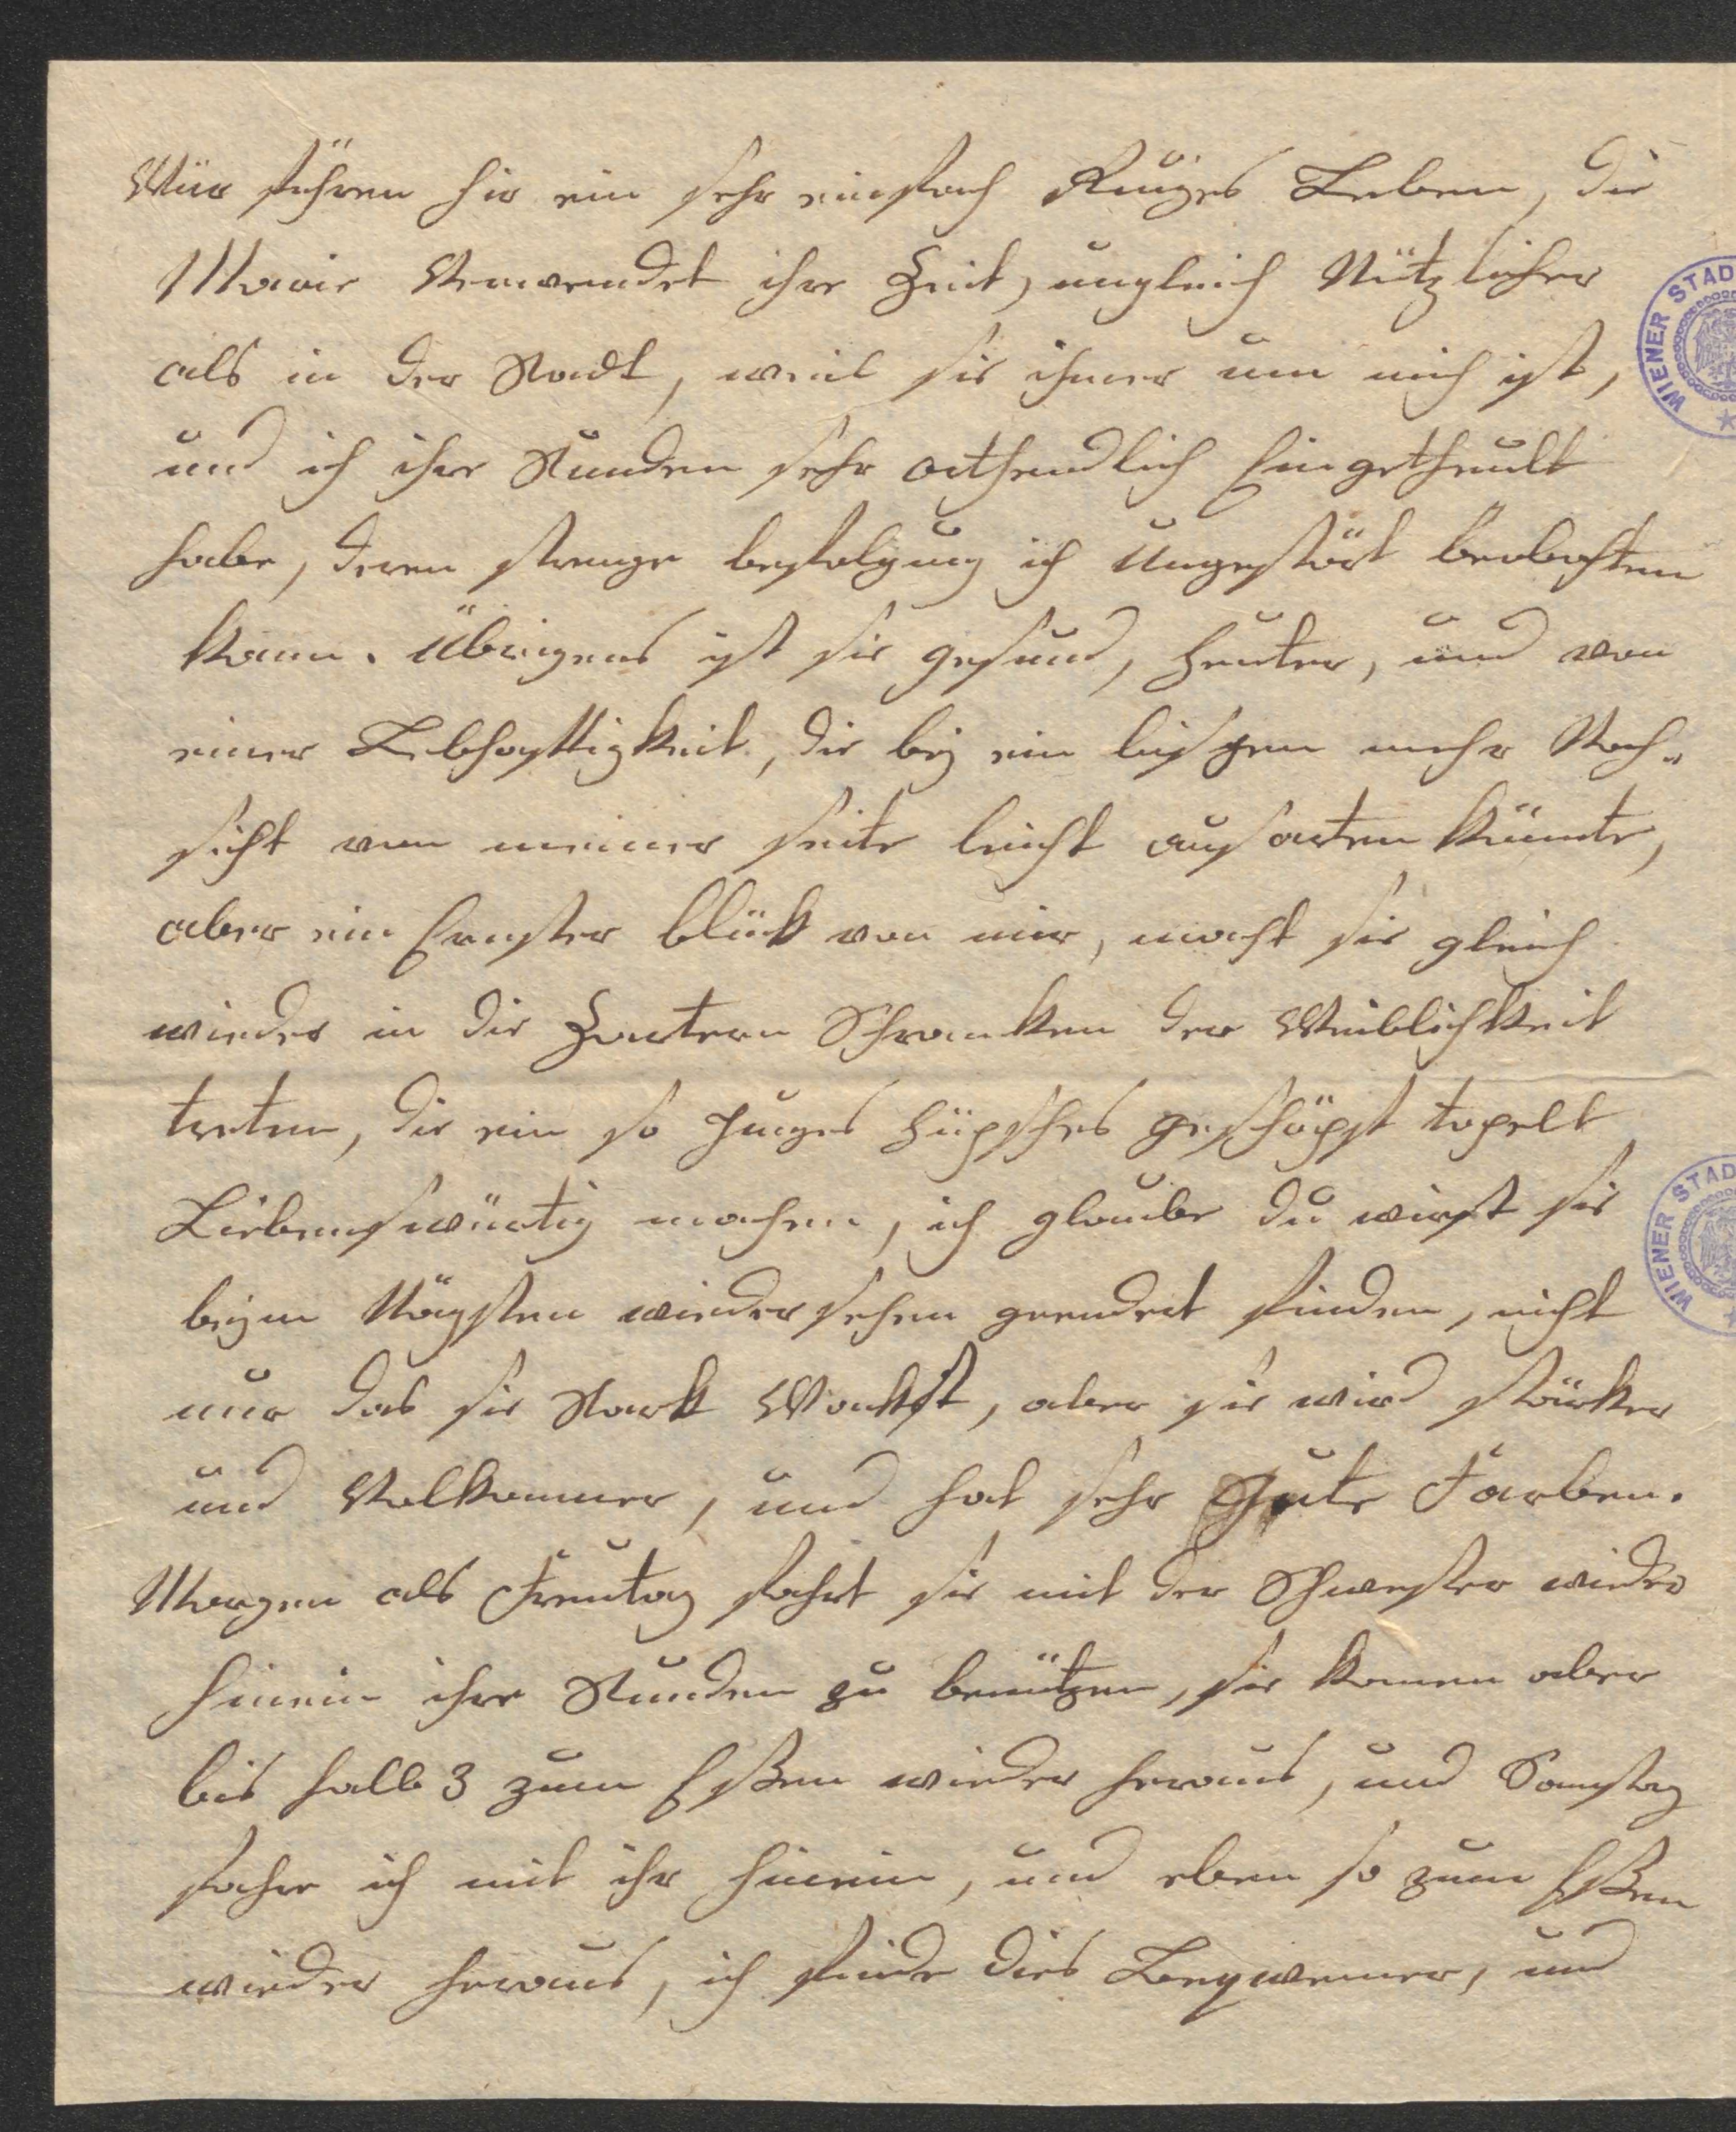 Wür führen hir ein sehr einfach Ruiges Leben, die
Marie Verwendet ihre Zeit, ungleich Nützlicher
als in der Stadt, weil sie imer um mich ist,
und ich ihre Stunden sehr orthendlich Eingetheult
habe, deren strenge befolgung ich Ungestört beobachten
kann. Übrigens ist sie gesund, heuter, und von
einer Lebhafttigkeit, die bej ein bischen mehr Nach-
sicht von meiner seite leicht ausarten künnte,
aber ein Ernster blück von mir, macht sie gleich
wieder in die Zartern Schranken der Weiblichkeit
treten, die ein so Junges hüpsches geschöpft topelt
Liebenswürtig machen, ich glaube du wirst sie
bejm Nägsten wiedersehen geendert finden, nicht
nur das sie Stark Wackst, aber sie wird stärker
und Volkomner, und hat sehr Gute Farben.
Morgen als Freutag fahrt sie mit der Schwester wieder
hinein ihre Stunden zu benützen, sie komen aber
bis halb 3 zum Eßen wieder heraus, und Samstag
fahre ich mit ihr hinein, und eben so zum Eßen
wieder heraus, ich finde dies Beqwemer, und
WIENER STAD
WIENER STAD